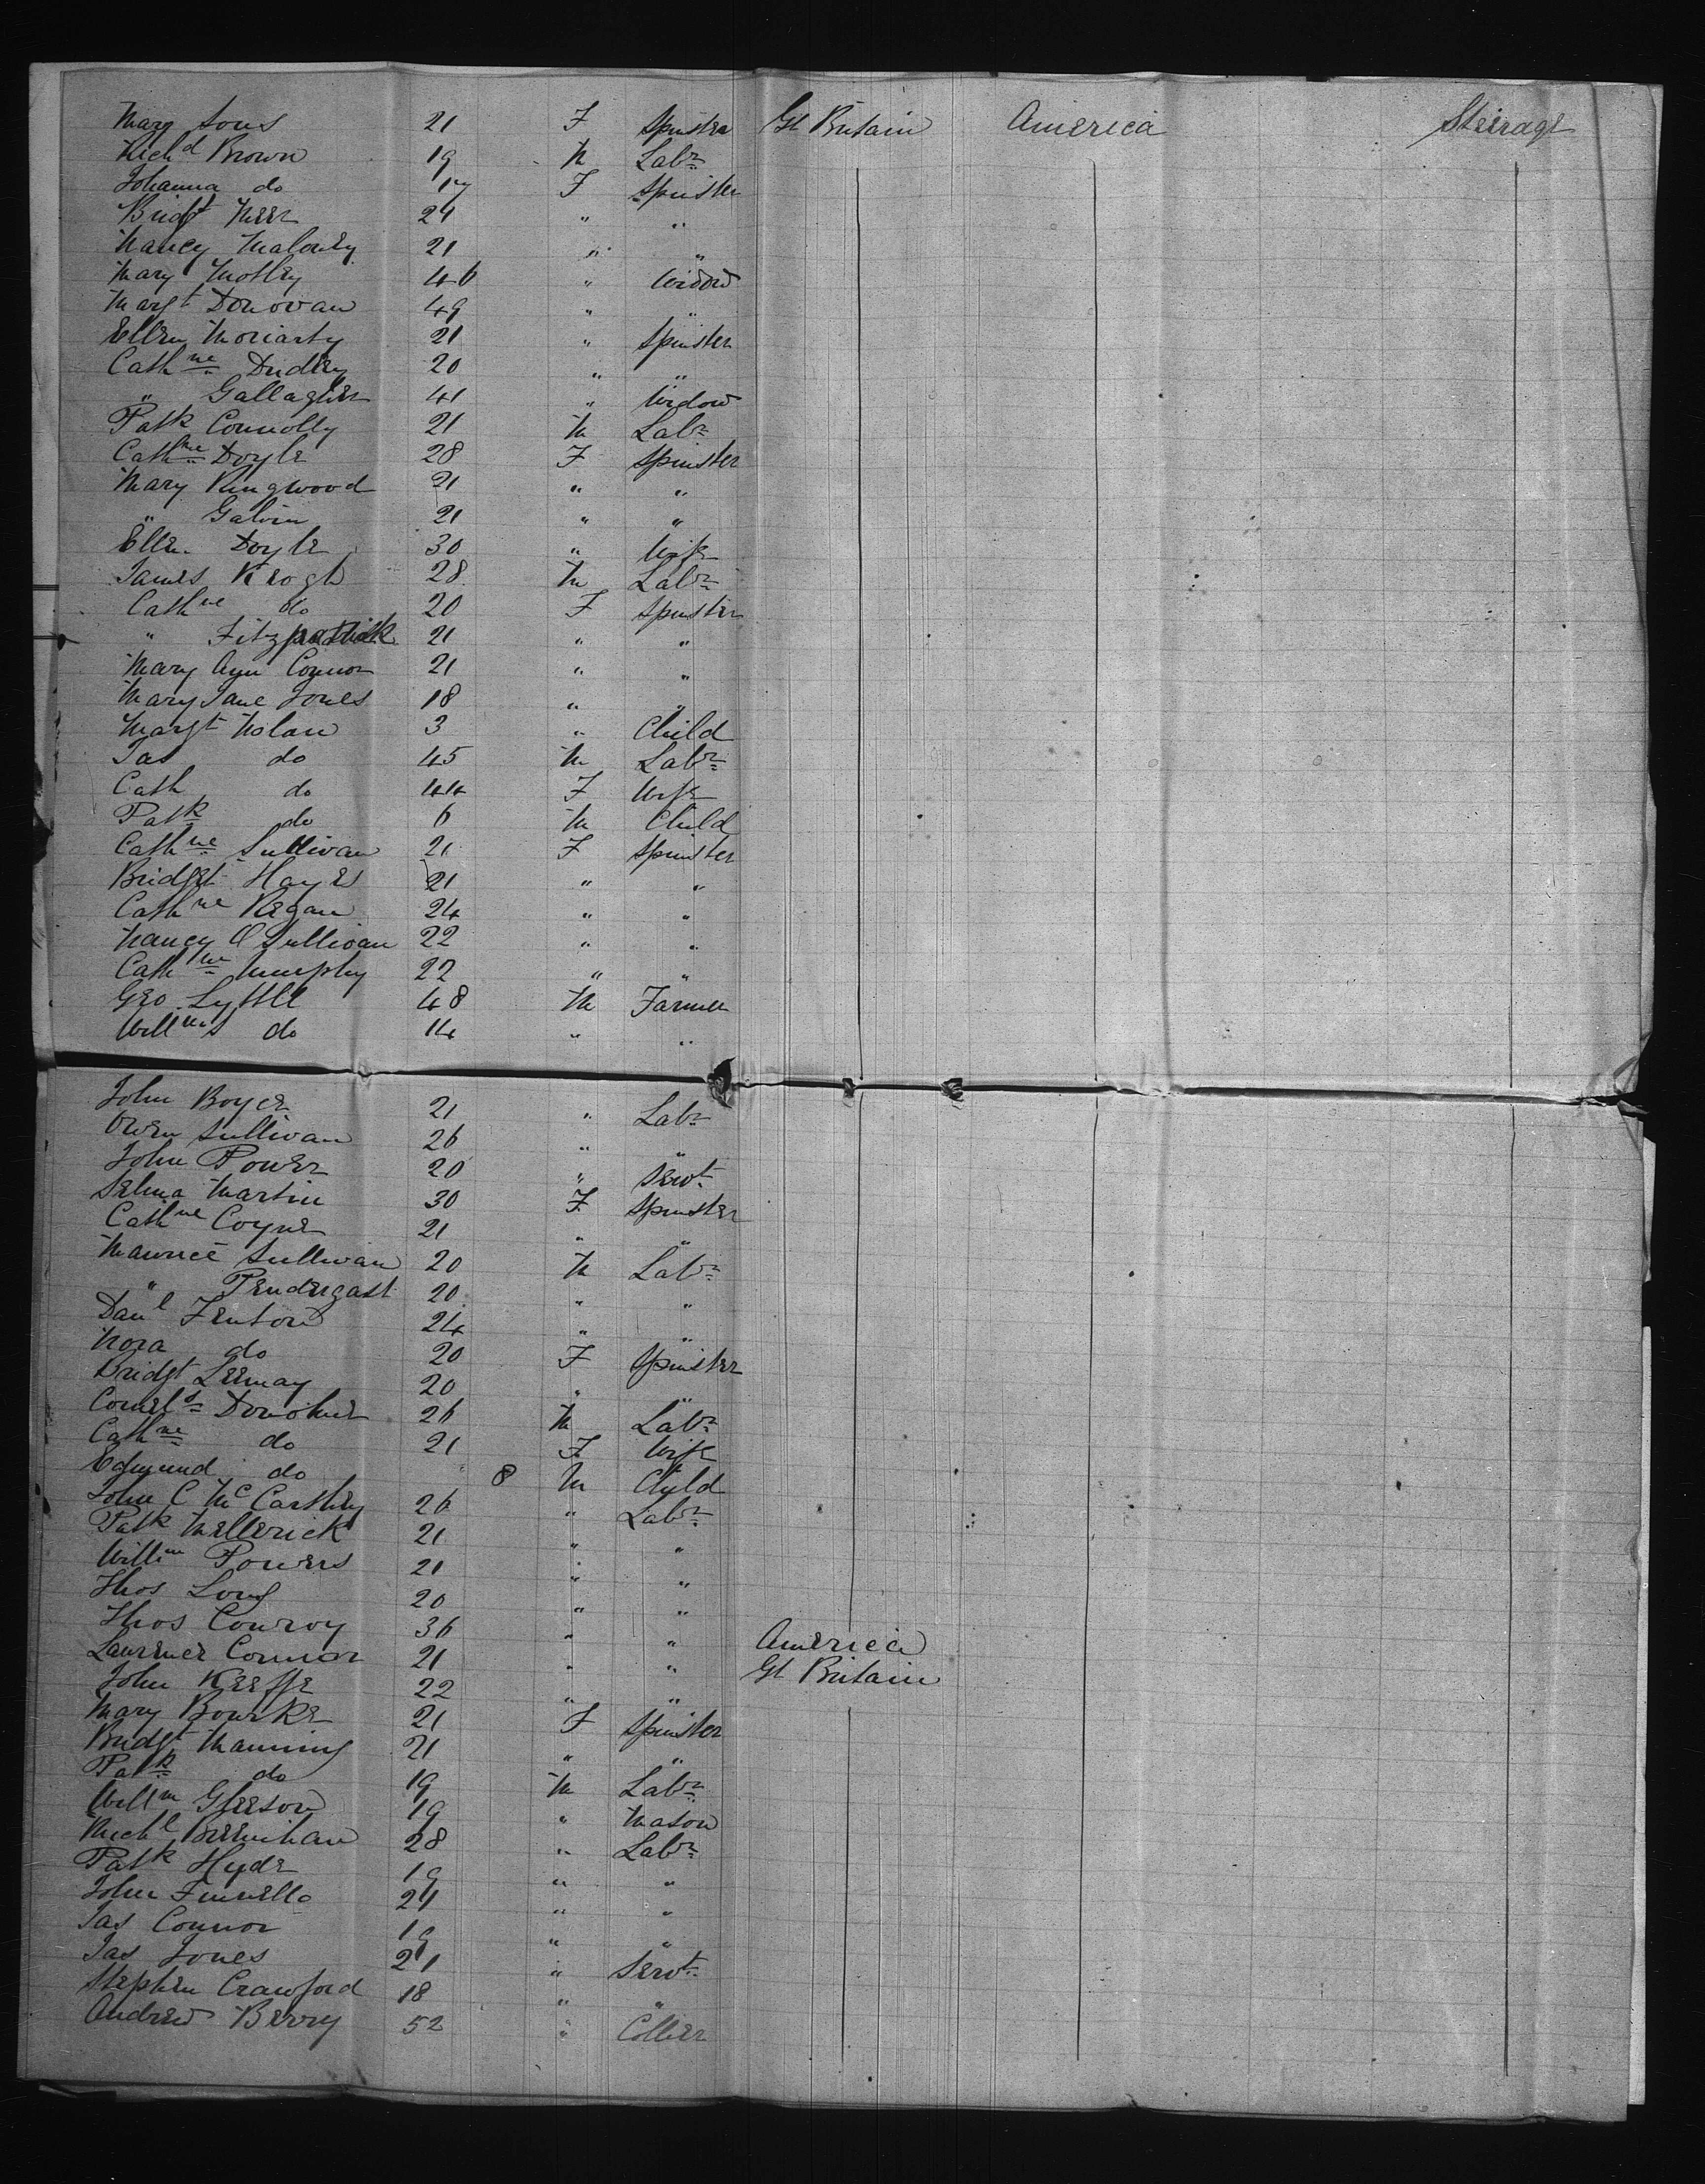 Mary Jones 21 F Spinster Gt Britain America Steerage
Richd Brown 19 M Labr
Johanna do 17 F Spinster
Bridgt Meer 24 " "
Nancy Maloney 21 " "
Mary Motley 46 " Widow
Margt Donovan 49 " "
Ellen Moriarty 21 " Spinster
Cathne Dudley 20 " "
" Gallagher 41 " Widow
Patk Connolly 21 M Labr
Cathne Doyle 28 F Spinster
Mary Ringwood 21 " "
" Galvin 21 " "
Ellen Doyle 30 " Wife
James Keogh 28 M Labr
Cathne do 20 F Spinster
" Fitzpatrick 21 " "
Mary Ann Connor 21 " "
Mary Jane Jones 18 " "
Margt Nolan 3 " Child
Jas do 45 M Labr
Cath do 44 F Wife
Patk do 6 M Child
Cathne Sullivan 21 F Spinster
Bridget Hayes 21 " "
Cathne Regan 24 " "
Nancy O Sullivan 22 " "
Cathne Murphy 22 " "
Geo Lyttle 48 M Farmer
Willm S do 14 " "
John Boyce 21 " Labr
Owen Sullivan 26 " "
John Power 20 " Servt
Selina Martin 30 F Spinster
Cathne Coyne 21 " "
Maurice Sullivan 20 M Labr
" Pendergast 20 " "
Danl Fenton 24 " "
Nora do 20 F Spinster
Bridgt Leemay 20 " "
Cornels Donohue 26 M Labr
Cathne do 21 F Wife
Edmund do 8 M Child
John C McCarthy 26 " Labr
Patk Mellerick 21 " "
Willm Powers 21 " "
Thos Long 20 " "
Thos Conroy 36 " " America
Laurence Connor 21 " " Gt Britain
John Keeffe 22 " "
Mary Bourke 21 F Spinster
Bridgt Manning 21 " "
Patk do 19 M Labr
Willm Gleeson 19 " Mason
Michl Breenihan 28 " Labr
Patk Hyde 19 " "
John Finnella 21 " "
Jas Connor 19 " "
Jas Jones 21 " Servt
Stephen Crawford 18 " "
Andrew Berry 52 " Collier